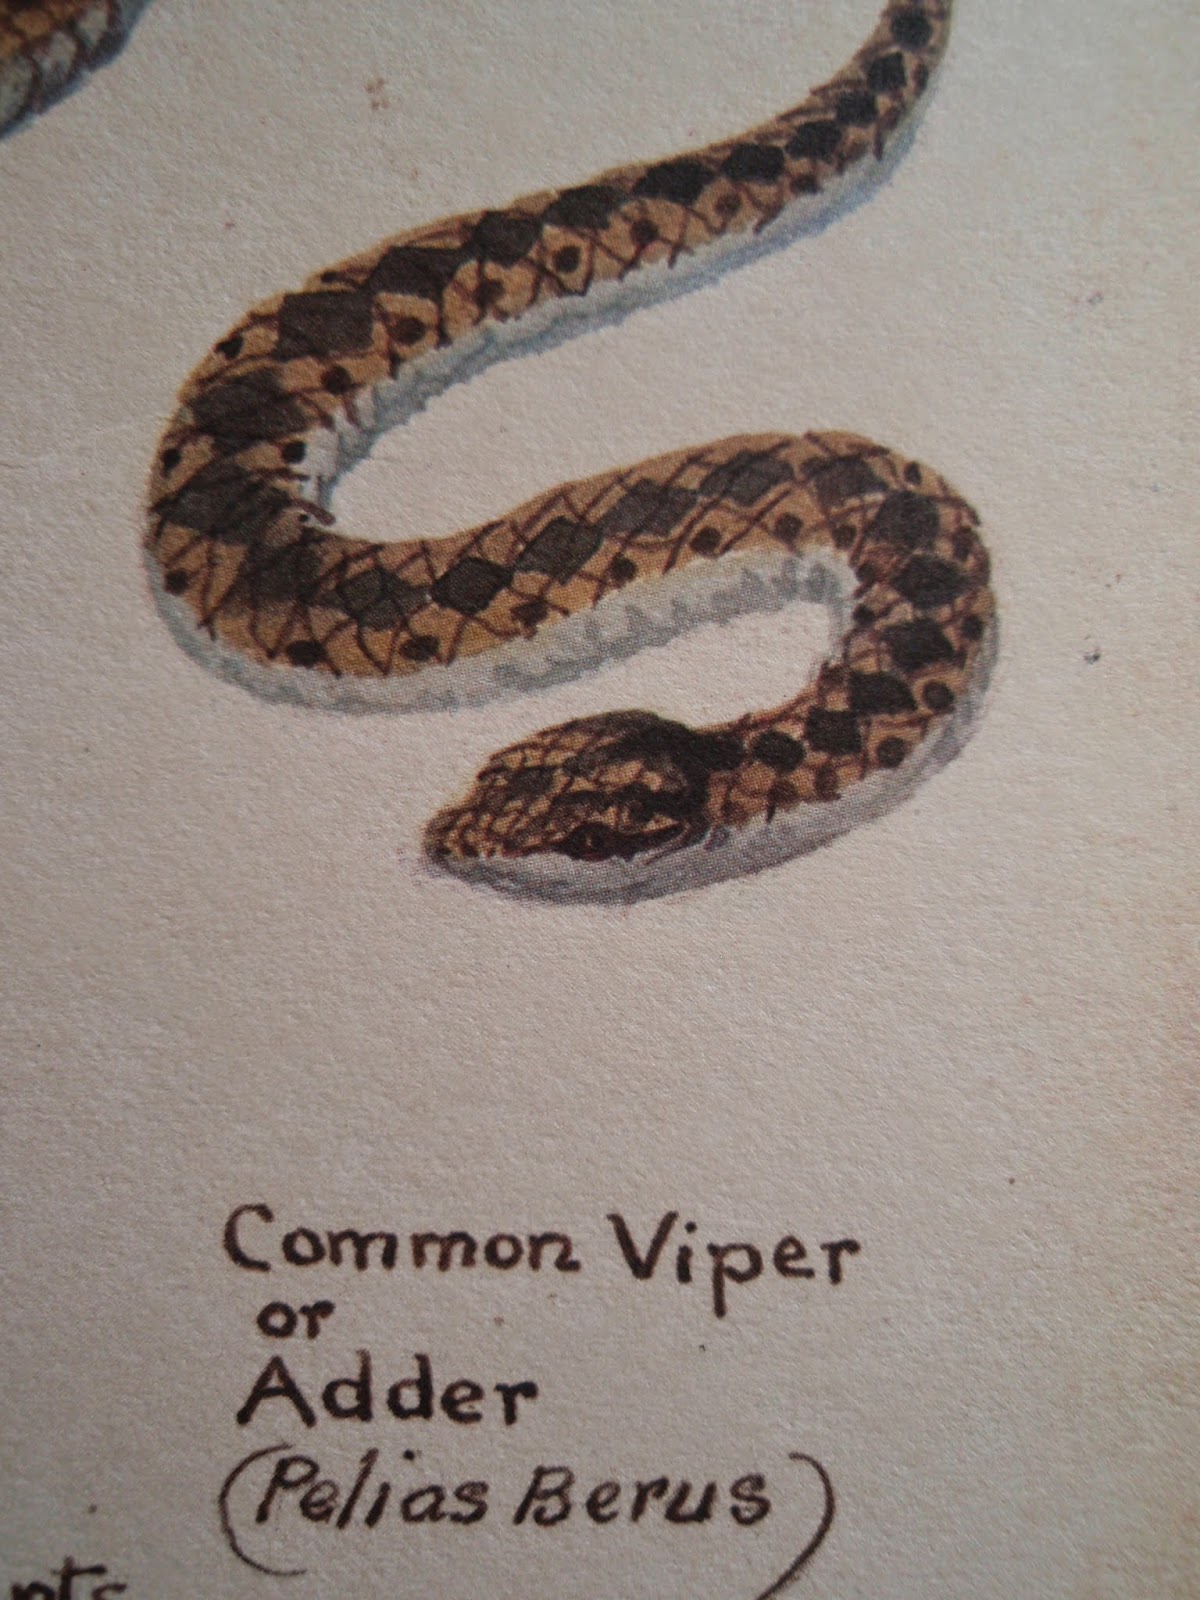 Common Viper
or
Adder
(Pelias Berus)